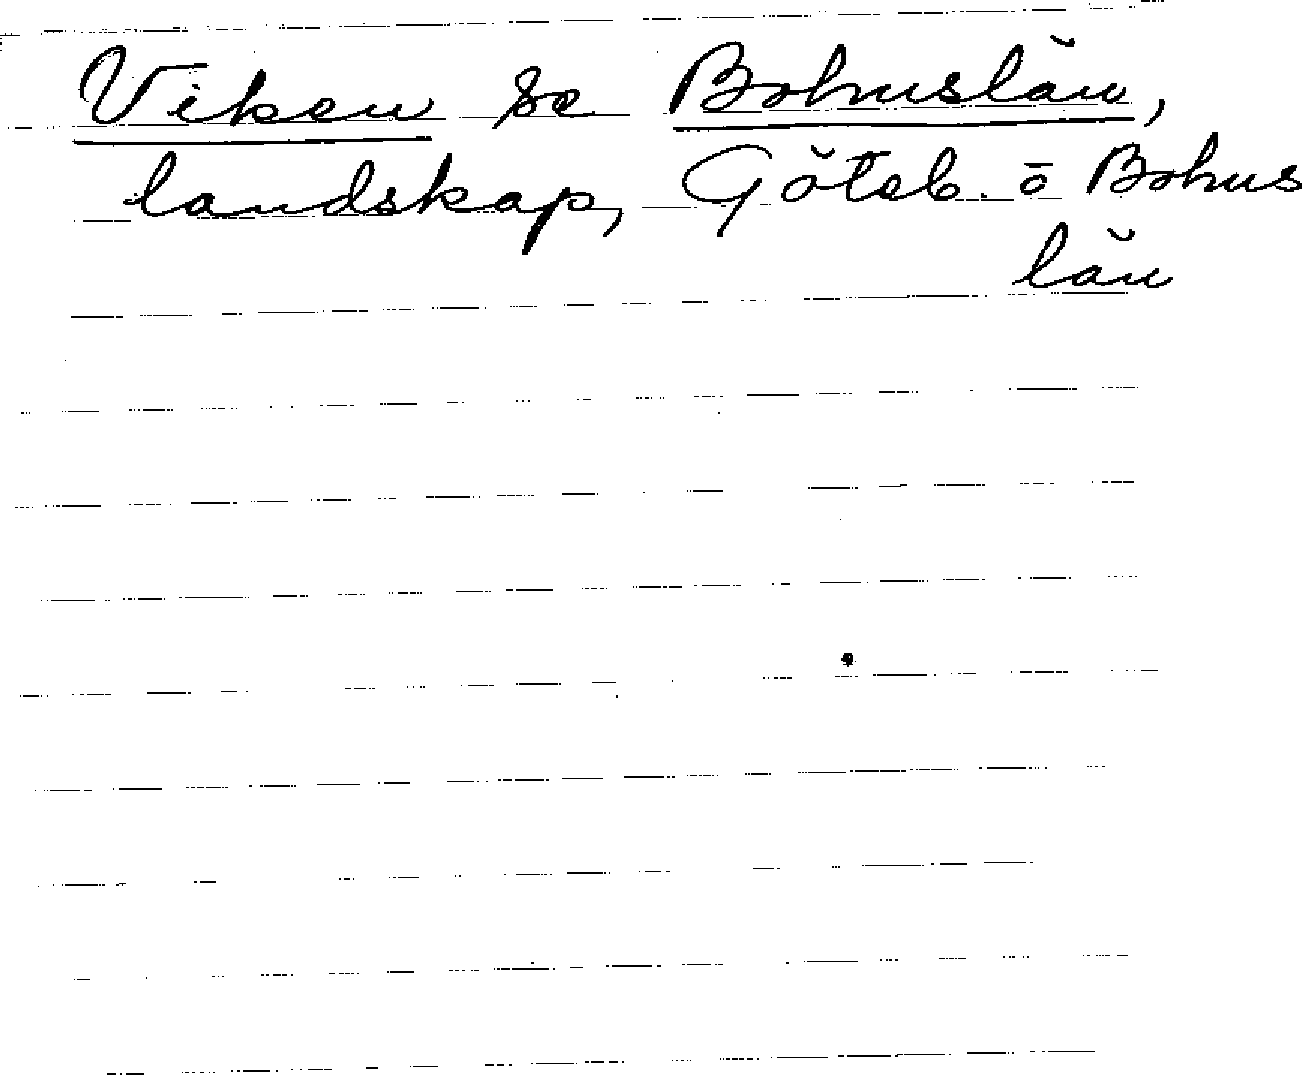 Viken se Bohuslän,
landskap, Göteb. o Bohus
län